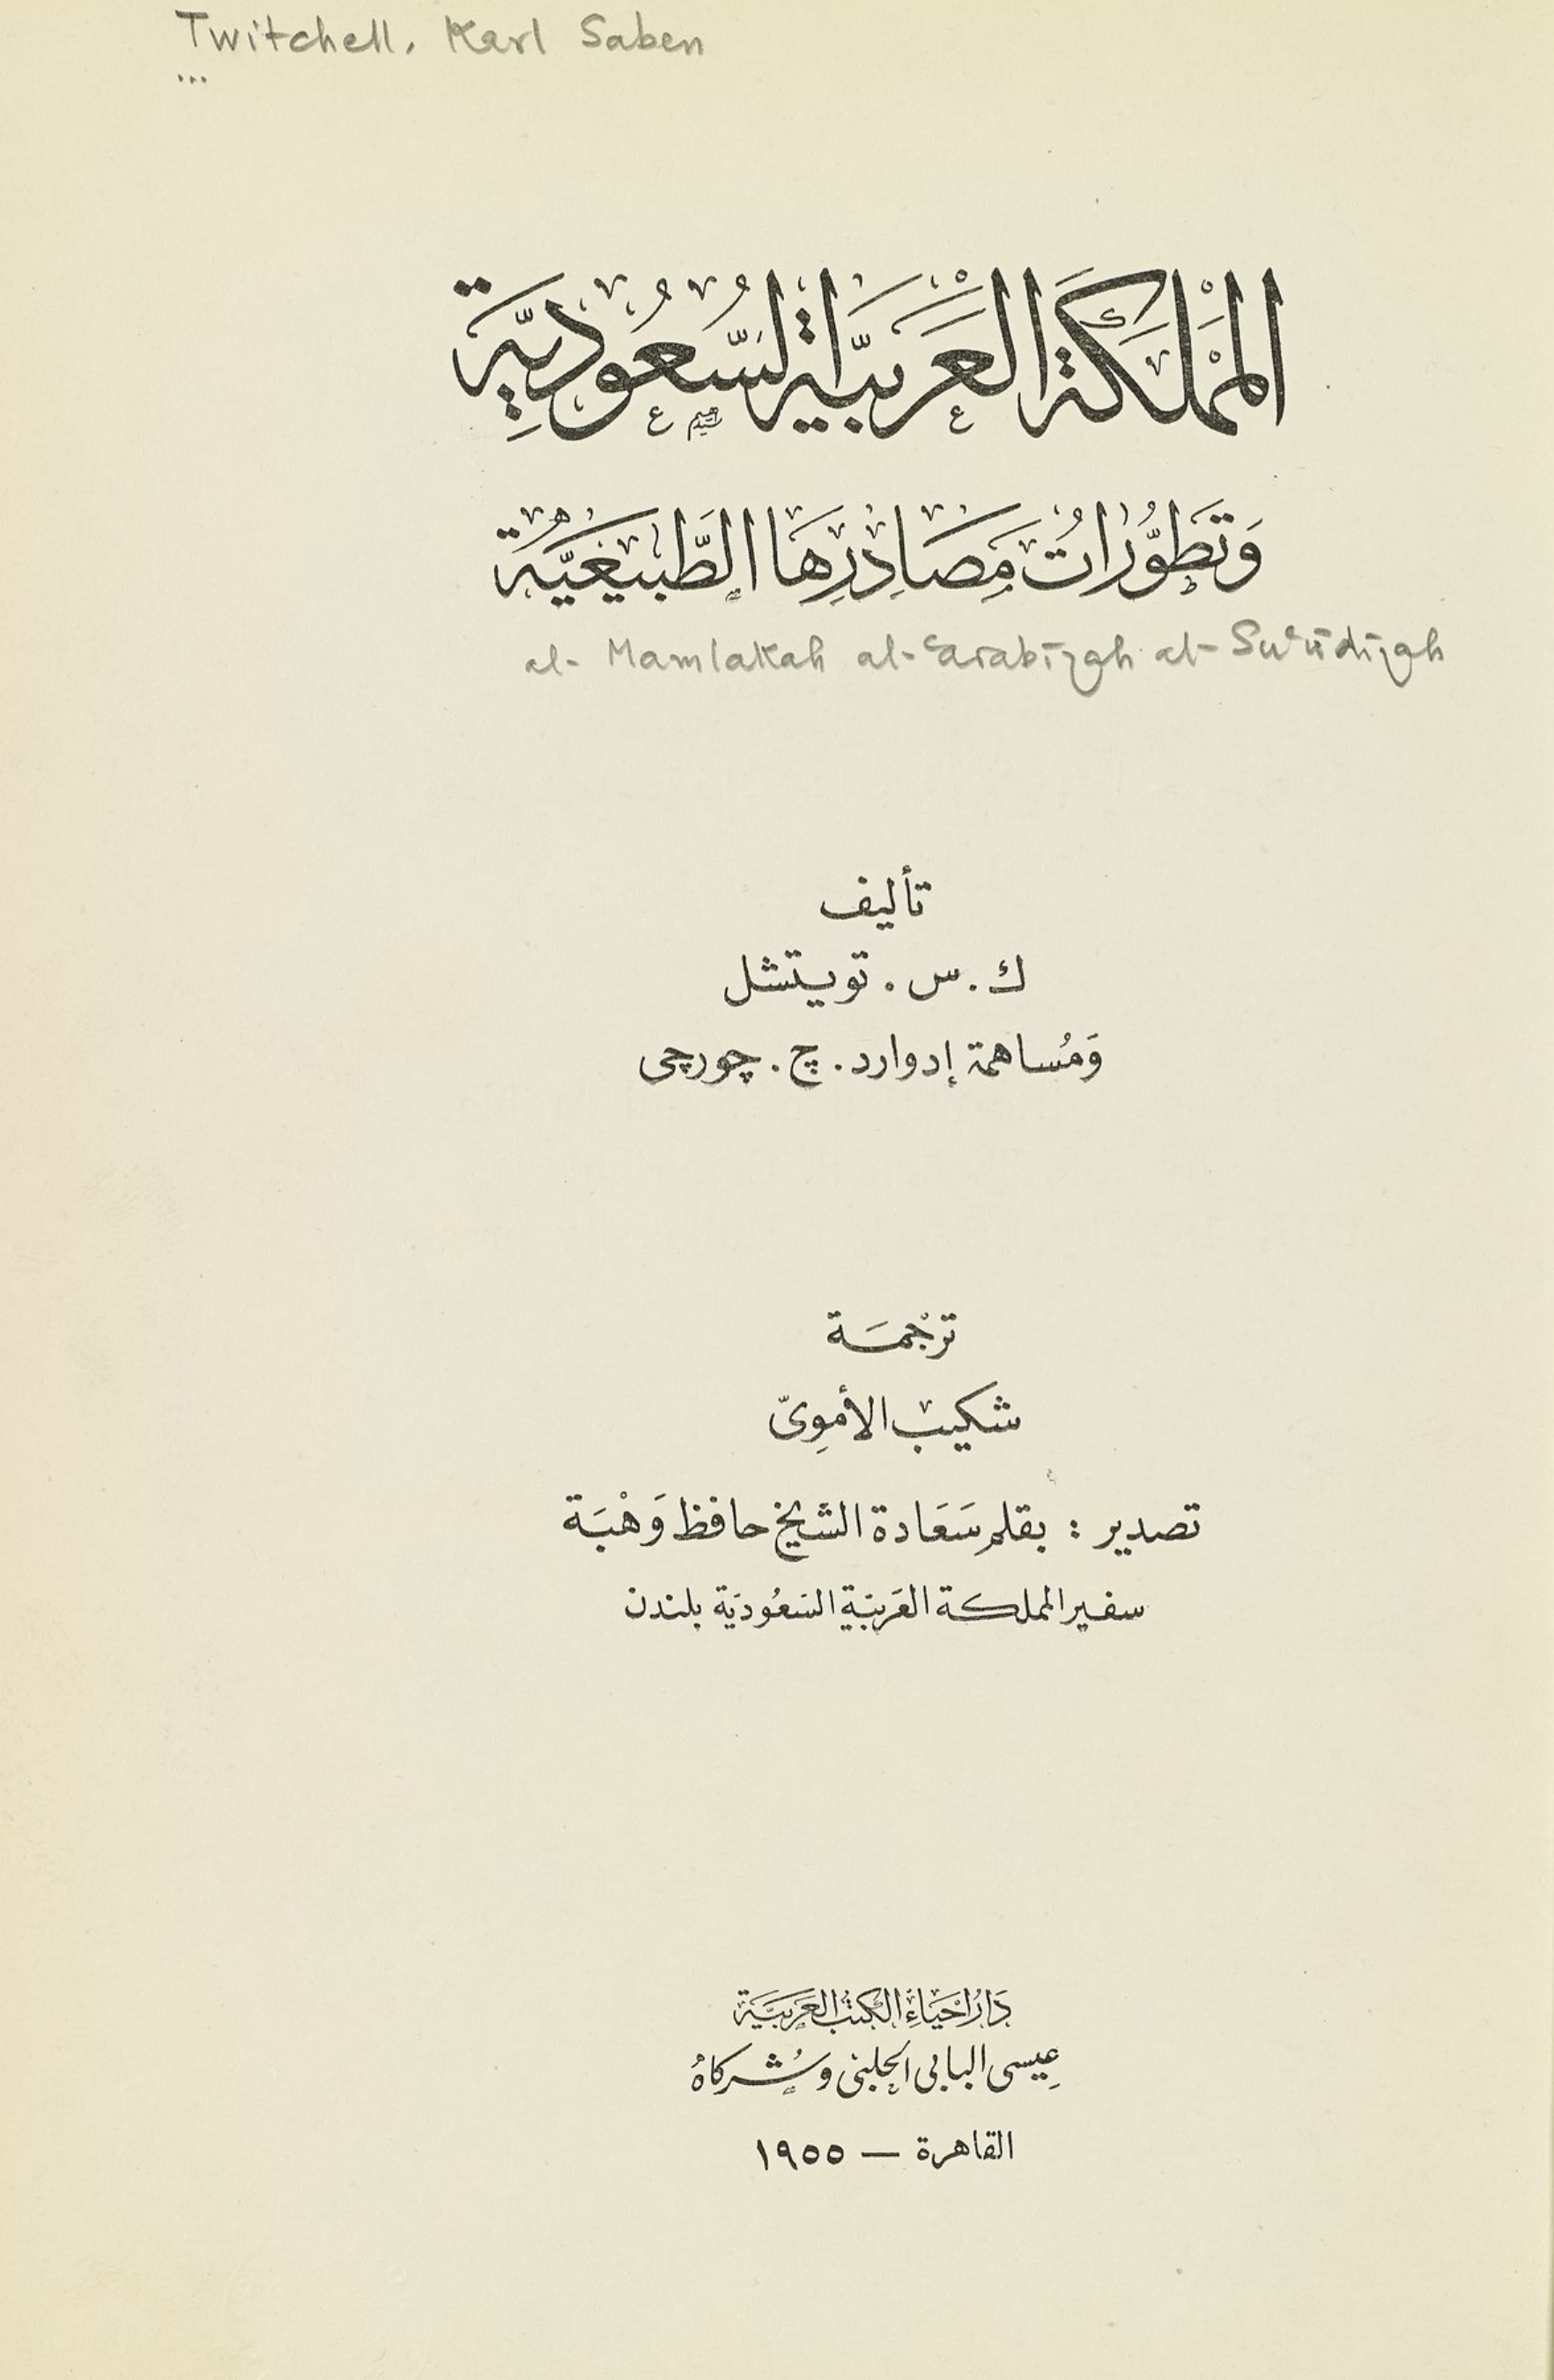 Twitchell, Karl Saben
...
المَمْلَكَةُ العَرَبيَّةُ السُّعُودِيَّة
وَتَطَوُّرَاتُ مَصَادِرِهَا الطَّبِيعِيَّة
al-Mamlakah al-ʿarabīyah al-Suʿūdīyah
تأليف
ك . س . تويتشل
وَمُساهمة إدوارد . چ . چورچى
ترْجمَة
شكيب الأموِىّ
تصدير : بقلم سَعَادة الشيخ حافظ وَهْبَة
سفير المملكة العَربيّة السَعُوديَة بلندن
دَارُ إحيَاءِ الكتبُ العَرَبيَّة
عِيسى البابى الحلبى وشُركاهُ
القاهرة — ١٩٥٥